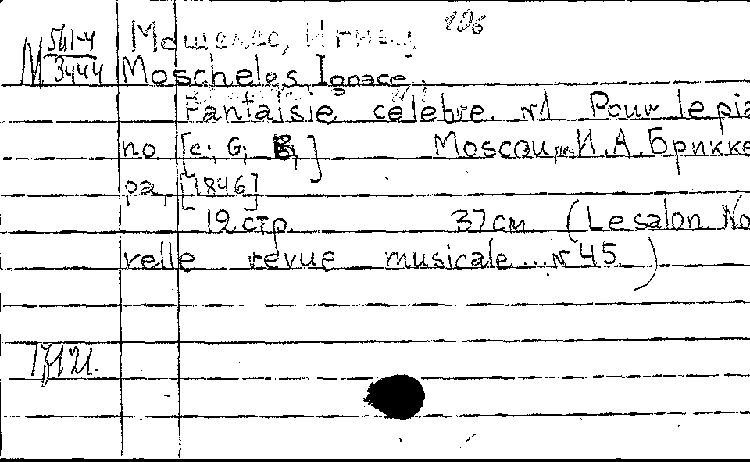 Мошелес, Игнац 106
М 561-4/3444 Moscheles, Ignace.
Fantaisie célèbre. №1 Pour le pia
no [e; G; ] Moscou, И.А. Брикке
ра, [1846]
12 стр. 37 см (Le salon No
velle revue musicale... №45.)